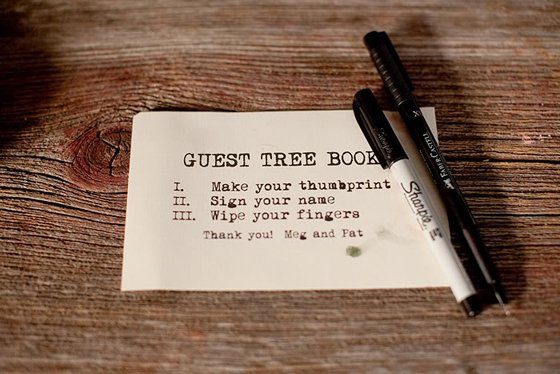 GUEST TREE BOOK
I. Make your thumbprint
II. Sign your name
III. Wipe your fingers
Thank you! Meg and Pat
Sharpie
FABER-CASTELL